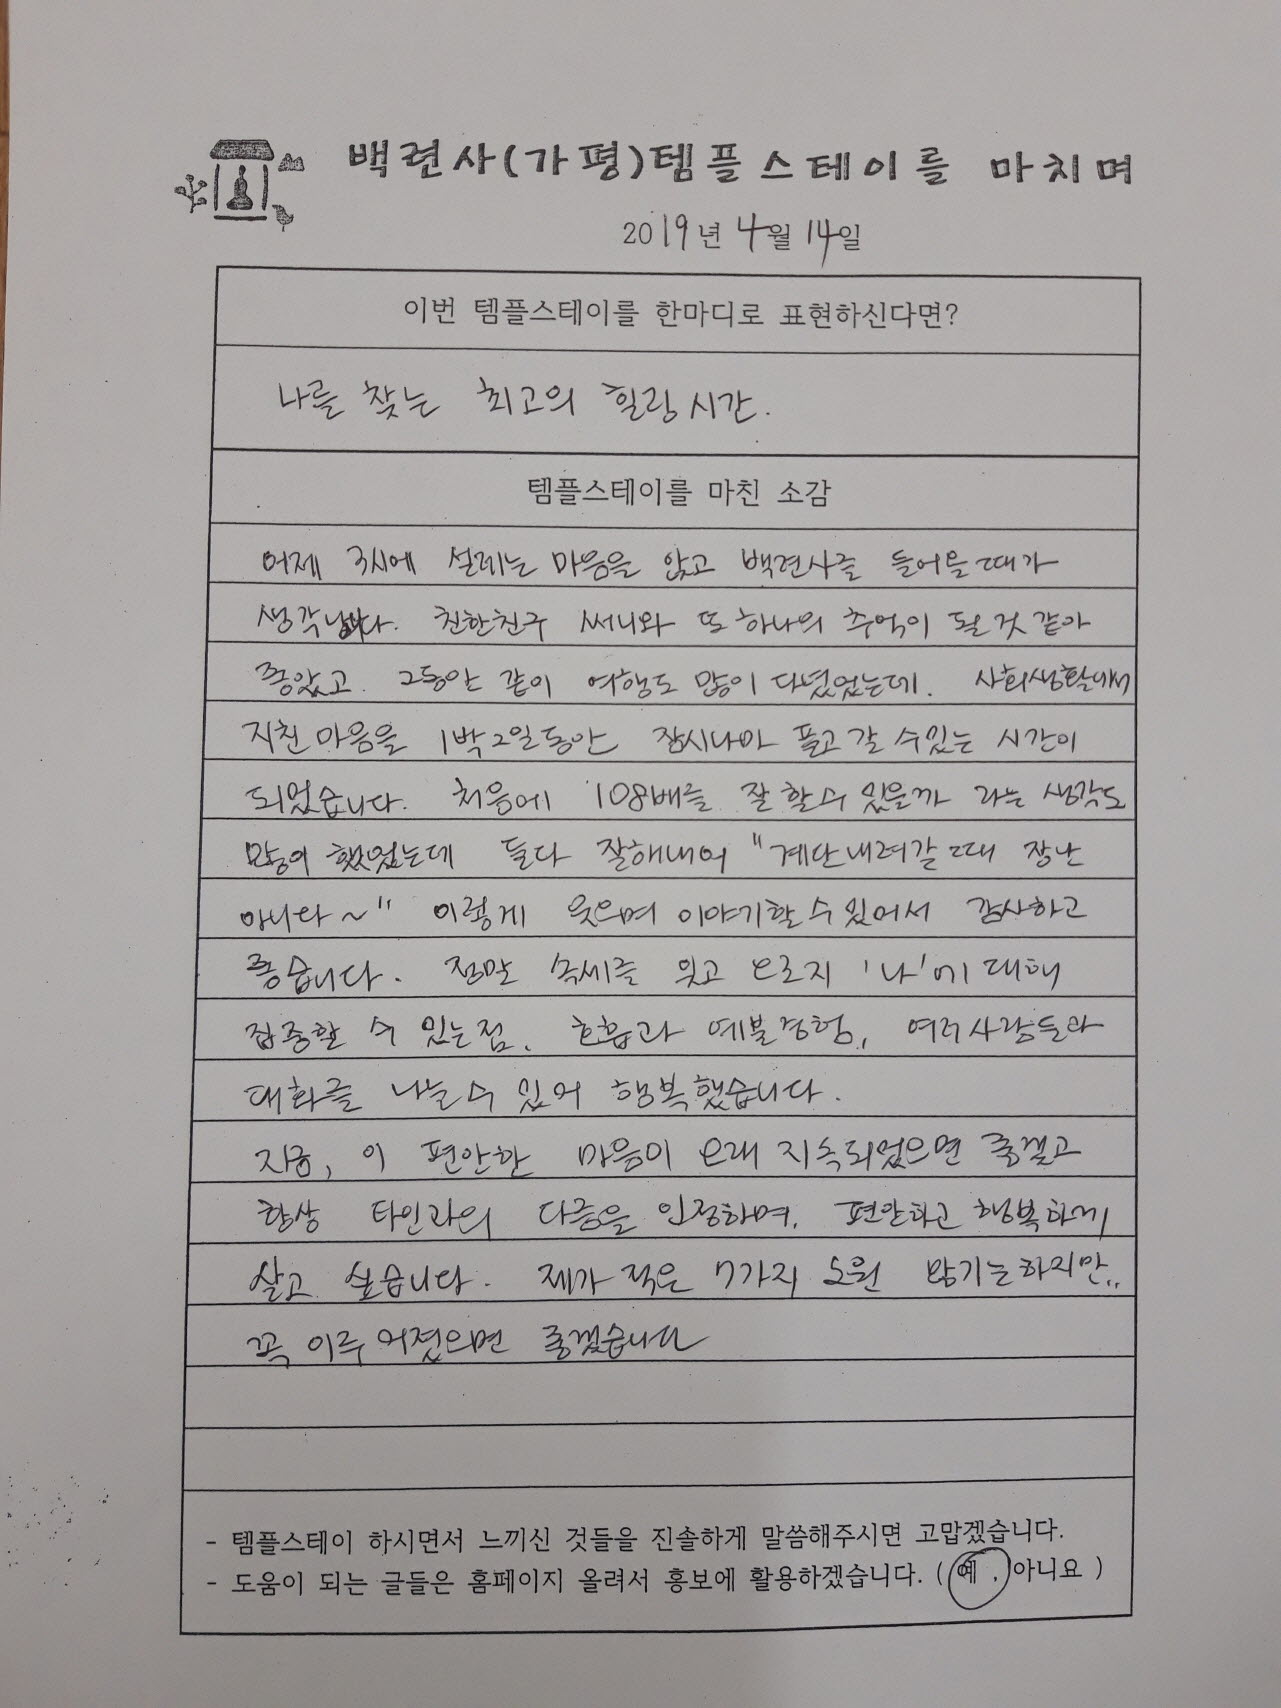 백련사(가평)템플스테이를 마치며
2019년 4월 14일
이번 템플스테이를 한마디로 표현하신다면?
나를 찾는 최고의 힐링 시간.
템플스테이를 마친 소감
어제 3시에 설레는 마음을 안고 백련사를 들어올때가
생각납니다. 친한친구 써니와 또 하나의 추억이 될것 같아
좋았고. 그동안 같이 여행도 많이 다녔었는데. 사회생활에서
지친 마음을 1박2일동안 잠시나마 풀고 갈 수 있는 시간이
되었습니다. 처음에 108배를 잘 할수 있을까 라는 생각도
많이 했었는데 둘다 잘해내어 "계단내려갈때 장난
아니다~" 이렇게 웃으며 이야기할 수 있어서 감사하고
좋습니다. 정말 속세를 잊고 오로지 '나'에 대해
집중할 수 있는점. 호흡과 예불경험, 여러사람들과
대화를 나눌수 있어 행복했습니다.
지금, 이 편안한 마음이 오래 지속되었으면 좋겠고
항상 타인과의 다름을 인정하며, 편안하고 행복하게
살고 싶습니다. 제가 적은 7가지 소원 많기는하지만..
꼭 이루어졌으면 좋겠습니다
- 템플스테이 하시면서 느끼신 것들을 진솔하게 말씀해주시면 고맙겠습니다.
- 도움이 되는 글들은 홈페이지 올려서 홍보에 활용하겠습니다. ( 예 , 아니요 )